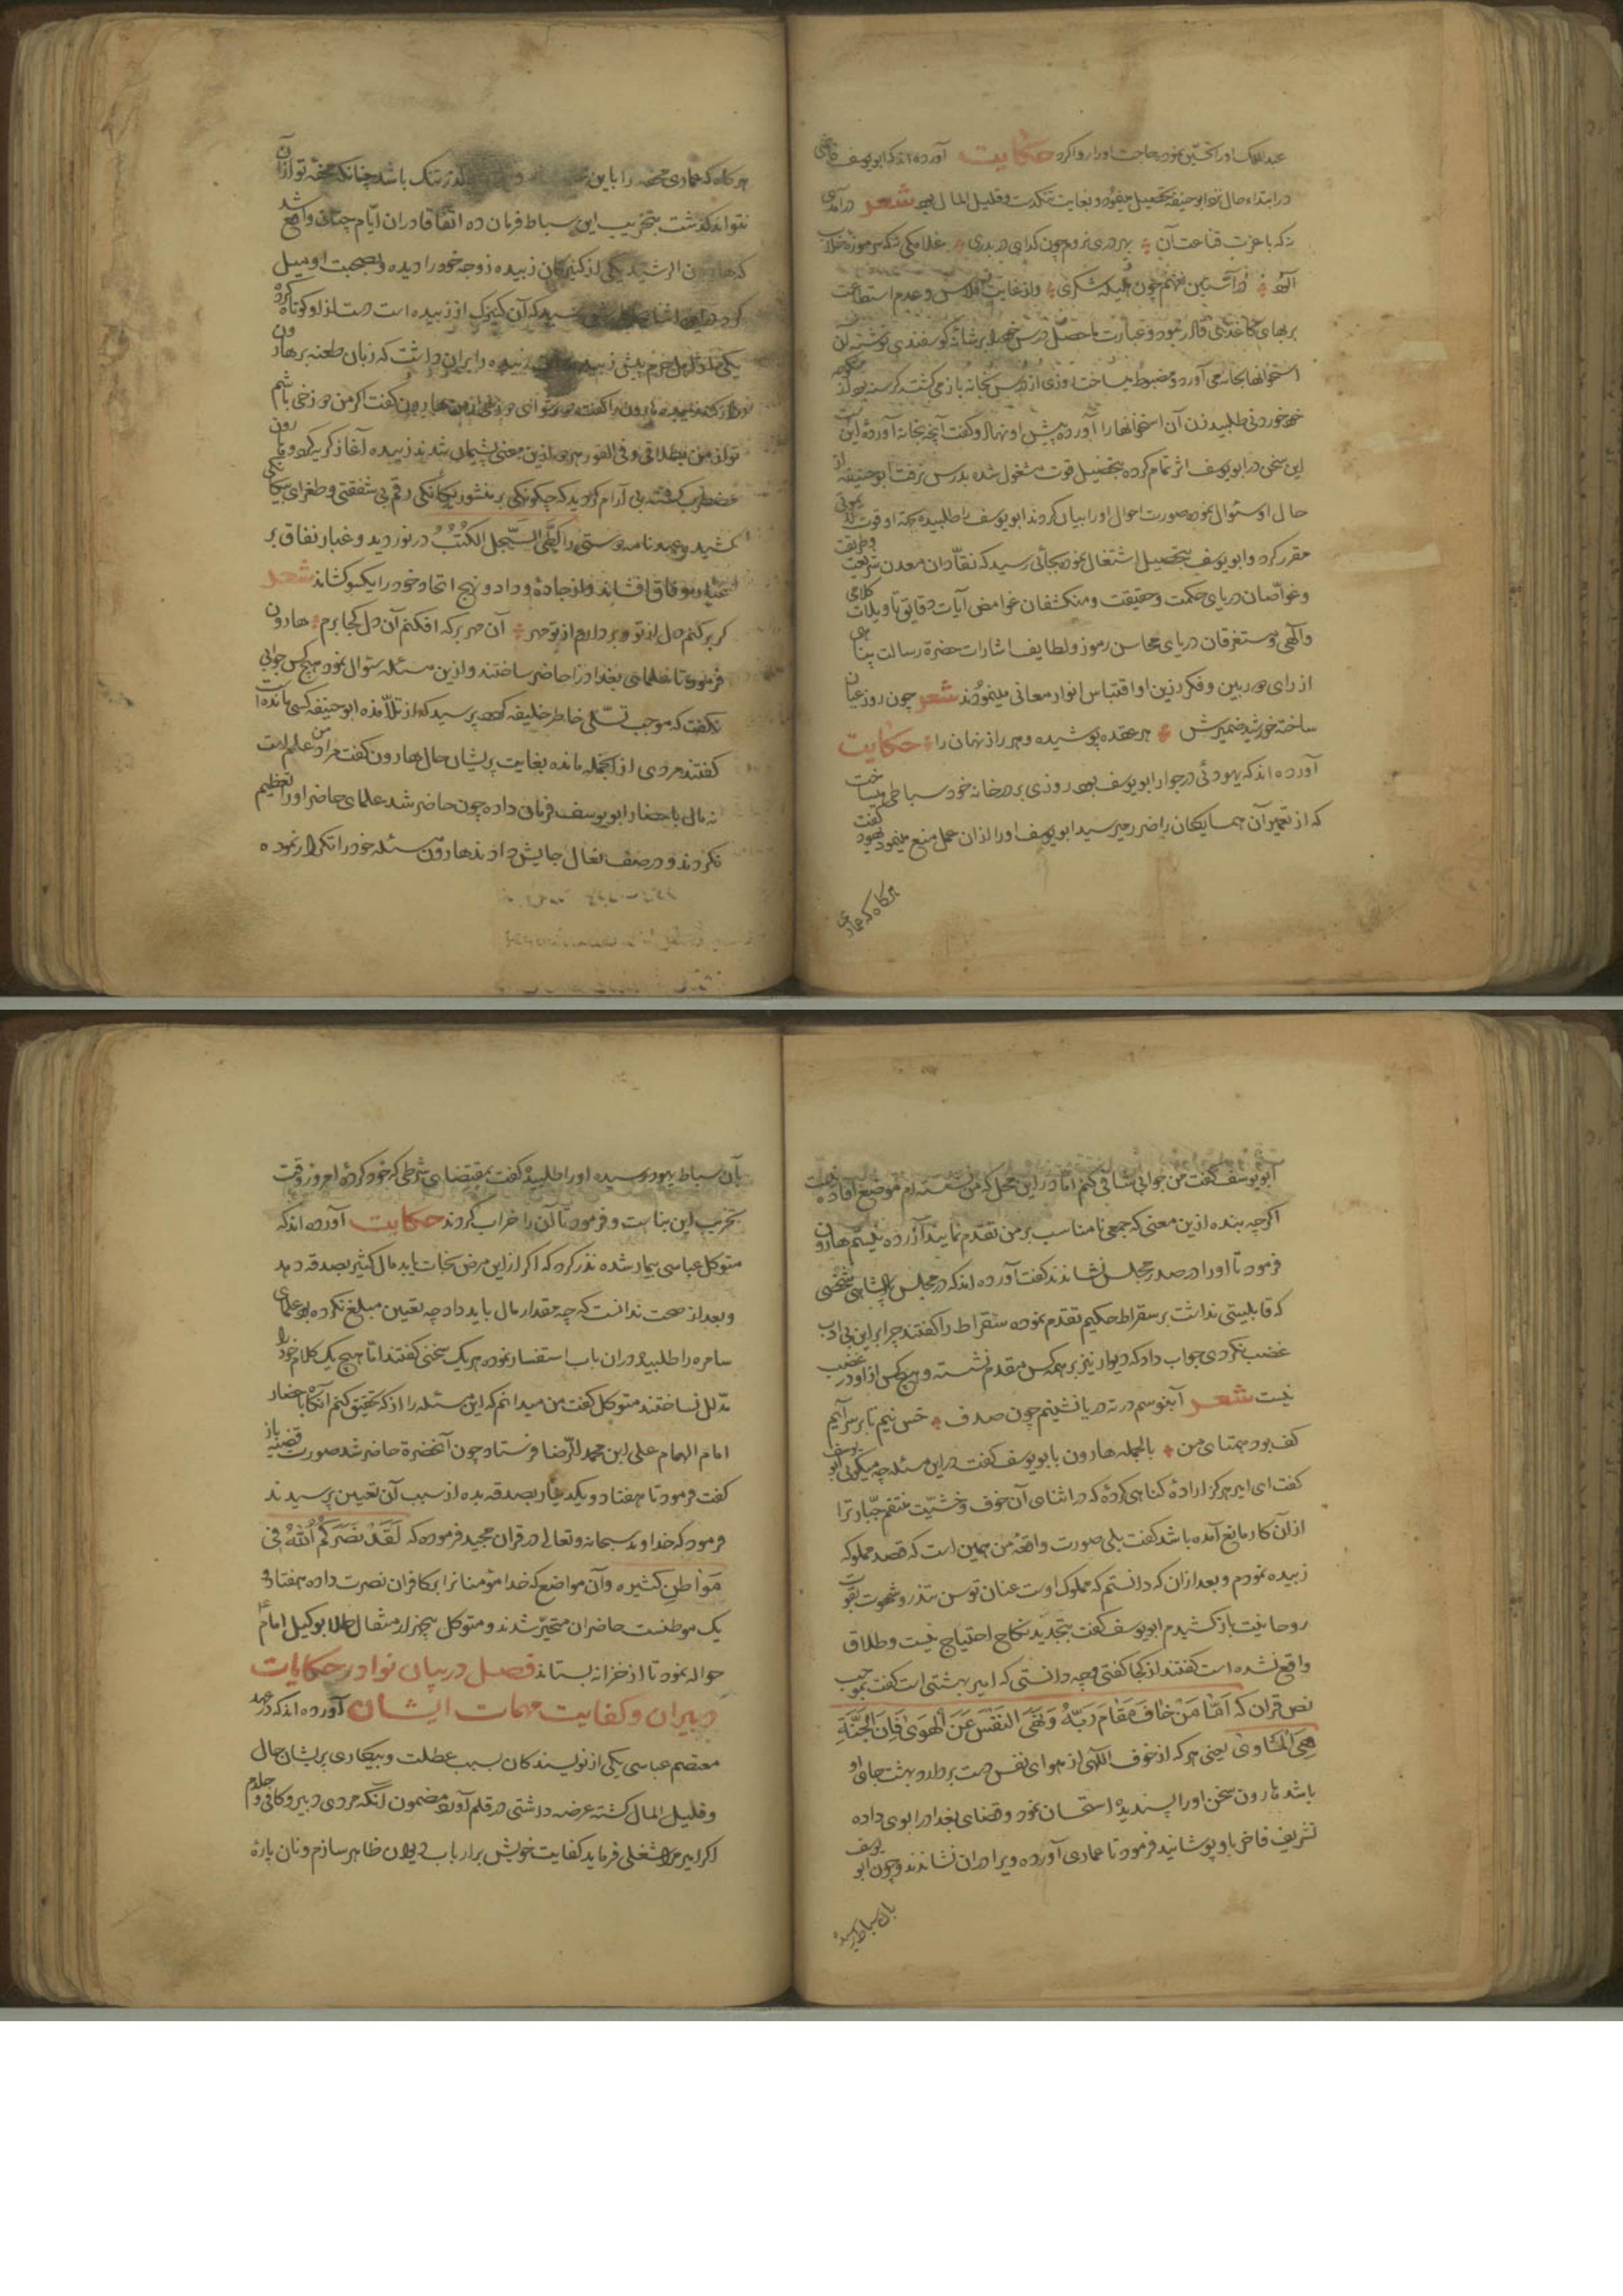 عبدالملک اورا تحسین نموده حاجت اورا روا کرد حکایت آورده اند که ابویوسف قاضی
در ابتداء حال نزد ابوحنیفه تحصیل مینمود و بغایت تنکدست و قلیل المال بود شعر
نه که با عزت قناعت آن بهر دری نروم چون کدای در بدری
آلود در آستین نهم چون وازغایت افلاس و عدم استطاعت
بر بهای کاغذی قادر نبود و عبارت ما حصل درس خود بر شانه کوسفندی نوشته آن
استخوانها بخانه می آورد و مضبوط میساخت روزی از درس بخانه باز می کشت کرسنه بود از منکوحه
خود خوردنی طلبید زن آن استخوانها را آورده پیش او نهاد و کفت آنچه بخانه آوردهٔ این است
این سخن در ابویوسف اثر تمام کرده بتحصیل قوت مشغول شده بدرس نرفت ابوحنیفه از
حال او سئوال نموده صورت احوال اورا بیان کردند ابویوسف را طلبیده جهة او قوت
مقرر کرد و ابویوسف بتحصیل اشتغال نموده بجائی رسید که نقّادان معدن شریعت و طریقت
و غوّاصان دریای حکمت و حقیقت و منکشفان غوامض آیات دقایق تاویلات کلامی
والهی و مستغرقان دریای محاسن رموز و لطایف اشارات حضرة رسالت پناهی
از رای دوربین و فکر رزین او اقتباس انوار معانی مینمودند شعر چون روز عیان
ساخته خورشید ضمیرش هر عقده پوشیده و هر راز نهان را حکایت
آورده اند که یهودئی در جوار ابویوسف بود روزی بر در خانه خود سباطی میساخت
که از تعمیر آن همسایکان را ضرر میرسید ابویوسف اورا از آن عمل منع مینمود یهود کفت
هرکاه که عماری
هرکاه که عماری تحفه را باین کذر تنک باشد چنانکه محفّه تو از آن
نتواند کذشت بتخریب این سباط فرمان ده اتفاقا در ان ایّام چنان واقع شد
که هارون الرشید یکی از کنیزکان زبیده زوجه خود را دیده و بصحبت او میل
کرد در این اثنا که آن کنیزک از زبیده است دست از او کوتاه کرد
یکی از اهل حرم پیش زبیده زبیده را بران داشت که زبان طعنه بر هارون
دراز کند زبیده هارون را کفت هارون کفت اکر من دوزخی باشم
تو از من بطلاقی و فی الفور هر دو ازین معنی پشیمان شدند زبیده آغاز کریه کرد و هارون
مضطرب کشته بی آرام کردید که چکونکی بر منشور یکانکی رقم بی شفقتی و طغرای بیکانکی
کشیده و عهد نامه دوستی را کَطَیِّ السِّجِل الکُتُبْ در نوردید و غبار نفاق بر
وفاق افشاند و از جادهٔ وداد و نهج اتحاد خود را یکسو کشاند شعر
کر بر کنم دل از تو و بردارم از تو مهر آن مهر بر که افکنم آن دل کجا برم هارون
فرمود تا علمای بغداد را حاضر ساختند و ازین مسئله سئوال نمود هیچکس جوابی
نکفت که موجب تسلّی خاطر خلیفه کردد پرسید که از تلامذه ابوحنیفه کسی مانده است
کفتند مردی از آنجمله مانده بغایت پریشان حال هارون کفت مراد من علم است
نه مال باحضار ابویوسف فرمان داده چون حاضر شد علمای حاضر اورا تعظیم
نکردند و در صف نعال جایش دادند هارون مسئله خود را تکرار نموده
ابویوسف کفت من جوابی شافی کنم امّا در این محل که من نشسته ام موضع افاده نیست
اکرچه بنده ازین معنی که جمعی نا مناسب بر من تقدم نمایند آزرده نیستم هارون
فرمود تا اورا در صدر مجلس نشاندند کفت آورده اند که در مجلس پادشاهی شخصی
که قابلیتی نداشت بر سقراط حکیم تقدم نموده سقراط را کفتند چرا بر این بی ادب
غضب نکردی جواب داد که دیوار نیز بر همه کس مقدم نشسته و هیچکس از او در غضب
نیست شعر آبنوسم در ته دریا نشینم چون صدف خس نیم تا بر سر آیم
کف بود همتای من بالجمله هارون با ابویوسف کفت در این مسئله چه میکوئی ابویوسف
کفت ای امیر هرکز ارادهٔ کناهی کردهٔ که در اثنای آن خوف و خشیّت منتقم جبّار ترا
از آن کار مانع آمده باشد کفت بلی صورت واقعهٔ من همین است که قصد مملوکه
زبیده نمودم و بعد ازان که دانستم که مملوک اوست عنان توسن تندرو شهوت بقوت
روحانیت باز کشیدم ابویوسف کفت بتجدید نکاح احتیاج نیست و طلاق
واقع نشده است کفتند از کجا کفتی و چه دانستی که امیر بهشتی است کفت بموجب
نص قران که اَمّا مَنْ خافَ مَقامَ رَبِّهِ وَنَهَی النَفْسَ عَنِ الْهَوی فَاِنَّ الجَنَّةَ
هِیَ الْمَاوی یعنی هر که از خوف اللهی از هوای نفس دست بردارد بهشت جای او
باشد هارون سخن اورا پسندیده استحسان نمود و قضای بغداد را بوی داده
تشریف فاخر باو پوشانید فرمود تا عماری آورده ویرا دران نشاندند و چون ابویوسف
بان سباط رسیده
بآن سباط یهود رسیده اورا طلبید و کفت بمقتضای شرطی که خود کردهٔ امروز وقت
تخریب این بناست و فرمود تا آن را خراب کردند حکایت آورده اند که
متوکل عباسی بیمار شده نذر کرد که اکر از این مرض نجات یابد مال کثیر بصدقه دهد
و بعد از صحت ندانست که چه مقدار مال باید داد چه تعیین مبلغ نکرده بود علمای
سامره را طلبید و دران باب استفسار نموده هر یک سخنی کفتند امّا هیچ یک کلام خود را
مدلل نساختند متوکل کفت من میدانم که این مسئله را از که تحقیق کنم آنکاه باحضار
امام الهمام علی ابن محمد الرّضا فرستاد چون آنحضرة حاضر شد صورت قضیه باز
کفت فرمود تا هفتاد و یکدینار بصدقه بده از سبب آن تعیین پرسیدند
فرمود که خداوند سبحانه و تعالی در قران مجید فرموده که لَقَدْ نَصَرَکُمُ اللّهُ فی
مَوَاطِن کثیره و آن مواضع که خدا مؤمنانرا بر کافران نصرت داده هفتاد و
یک موطنست حاضران متحیّر شدند و متوکل پنجهزار مثقال طلا بوکیل امام
حواله نمود تا از خزانه بستاند فصل در بیان نوادر حکایات
دبیران و کفایت مهمات ایشان آورده اند که در عهد
معتصم عباسی یکی از نویسندکان بسبب عطلت و بیکاری پریشان حال
و قلیل المال کشته عرضه داشتی در قلم آورد مضمون آنکه مردی دبیر و کافی و جلدم
اکر امیر مرا شغلی فرماید کفایت خویش بر ارباب دیوان ظاهر سازم و نان پارهٔ